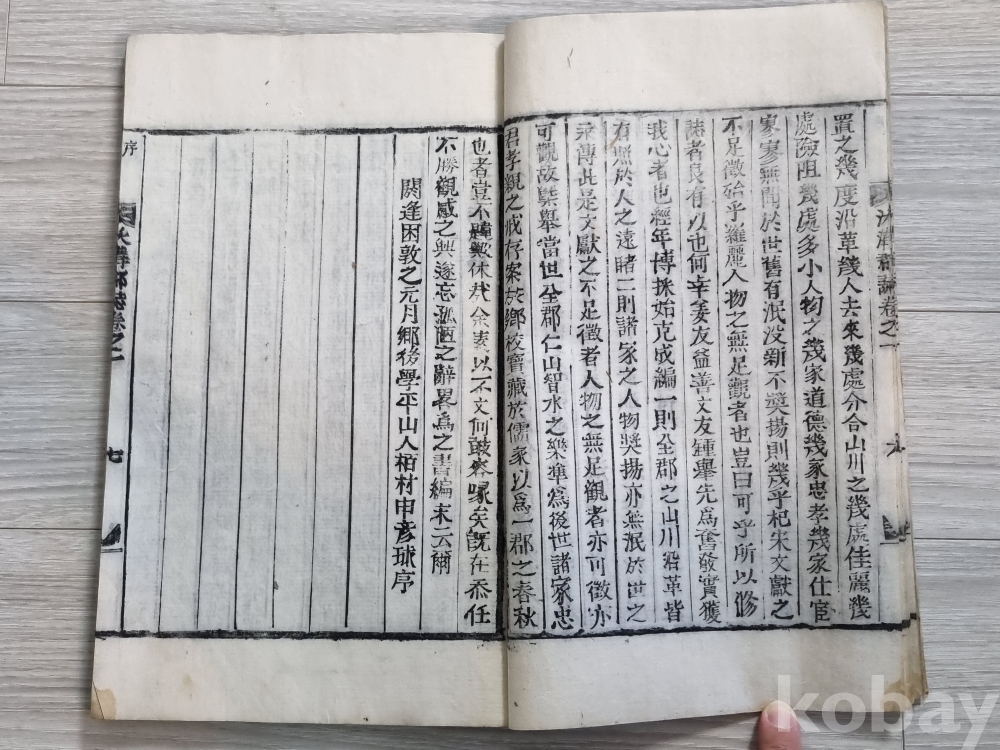 沃溝郡誌卷之一
六
置之幾度沿革幾人去來幾處分合山川之幾處佳麗幾
處險阻幾處多小人物之幾家道德幾家忠孝幾家仕宦
寥寥無聞於世舊有泯没新不奬揚則幾乎杞宋文獻之
不足徵殆乎羅麗人物之無足觀者也豈曰可乎所以修
誌者良有以也何幸姜友益善文友鍾擧先爲奮發實獲
我心者也經年博採始克成編一則全郡之山川沿革皆
有無於人之遠睹二則諸家之人物奬揚亦無泯於世之
永傳此是文獻之不足徵者人物之無足觀者亦可徵亦
可觀故槩擧當世全郡仁山智水之樂準爲後世諸家忠
君孝親之戒存案於鄕校寶藏於儒家以爲一郡之春秋
也者豈不韙歟休哉余素以不文何敢容喙矣旣在忝任
不勝觀感之興遂忘孤陋之辭畧爲之書編末云爾
閼逢困敦之元月鄕後學平山人栢材申彦球序
序
沃溝郡誌卷之一
七
kobay